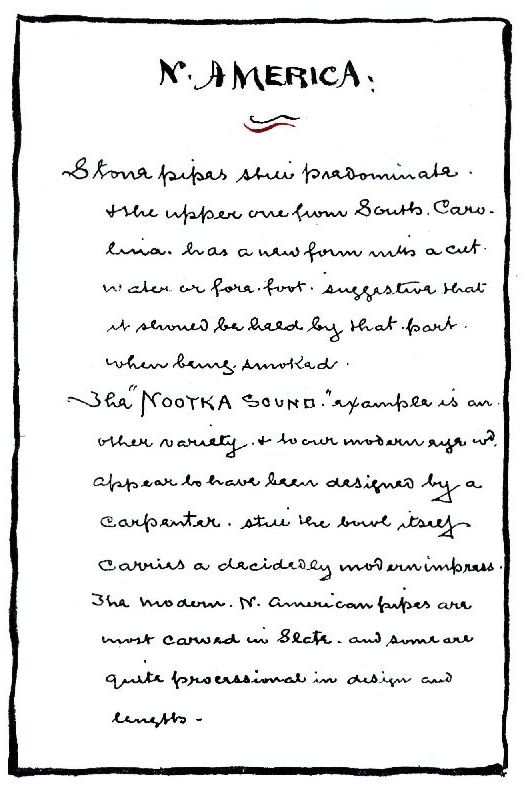 N. AMERICA.
Stone pipes still predominate.
& the upper one from South. Caro-
lina. has a new form with a cut.
water or fore-foot. suggestive that
it should be held by that. part.
when being smoked.
The "NOOTKA SOUND." example is an.
other variety. & to our modern eye wd.
appear to have been designed by a
carpenter. still the bowl itself
carries a decidedly modern impress.
The modern. N. American pipes are
most carved in Slate. and some are
quite processional in design and
length -